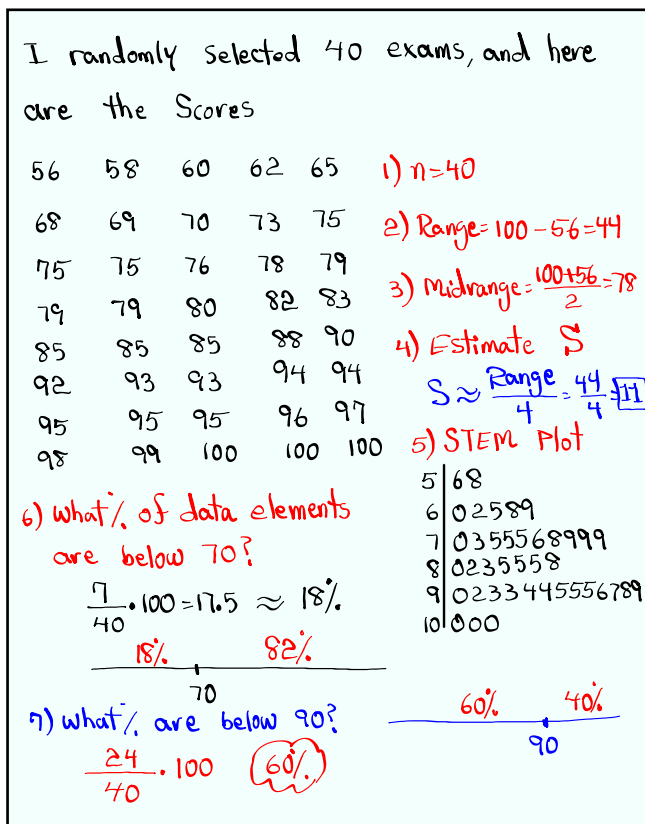 I randomly selected 40 exams, and here
are the Scores
56 58 60 62 65
68 69 70 73 75
75 75 76 78 79
79 79 80 82 83
85 85 85 88 90
92 93 93 94 94
95 95 95 96 97
98 99 100 100 100
1) n=40
2) Range=100-56=44
3) Midrange=\frac{100+56}{2}=78
4) Estimate S
S≈\frac{Range}{4}=\frac{44}{4}=11
5) STEM Plot
5|68
6|02589
7|0355568999
8|0235558
9|0233445556789
10|000
6) what % of data elements
are below 70?
\frac{7}{40}•100=17.5≈18%
18% 82%
70
7) what % are below 90?
\frac{24}{40}•100 60%
60% 40%
90